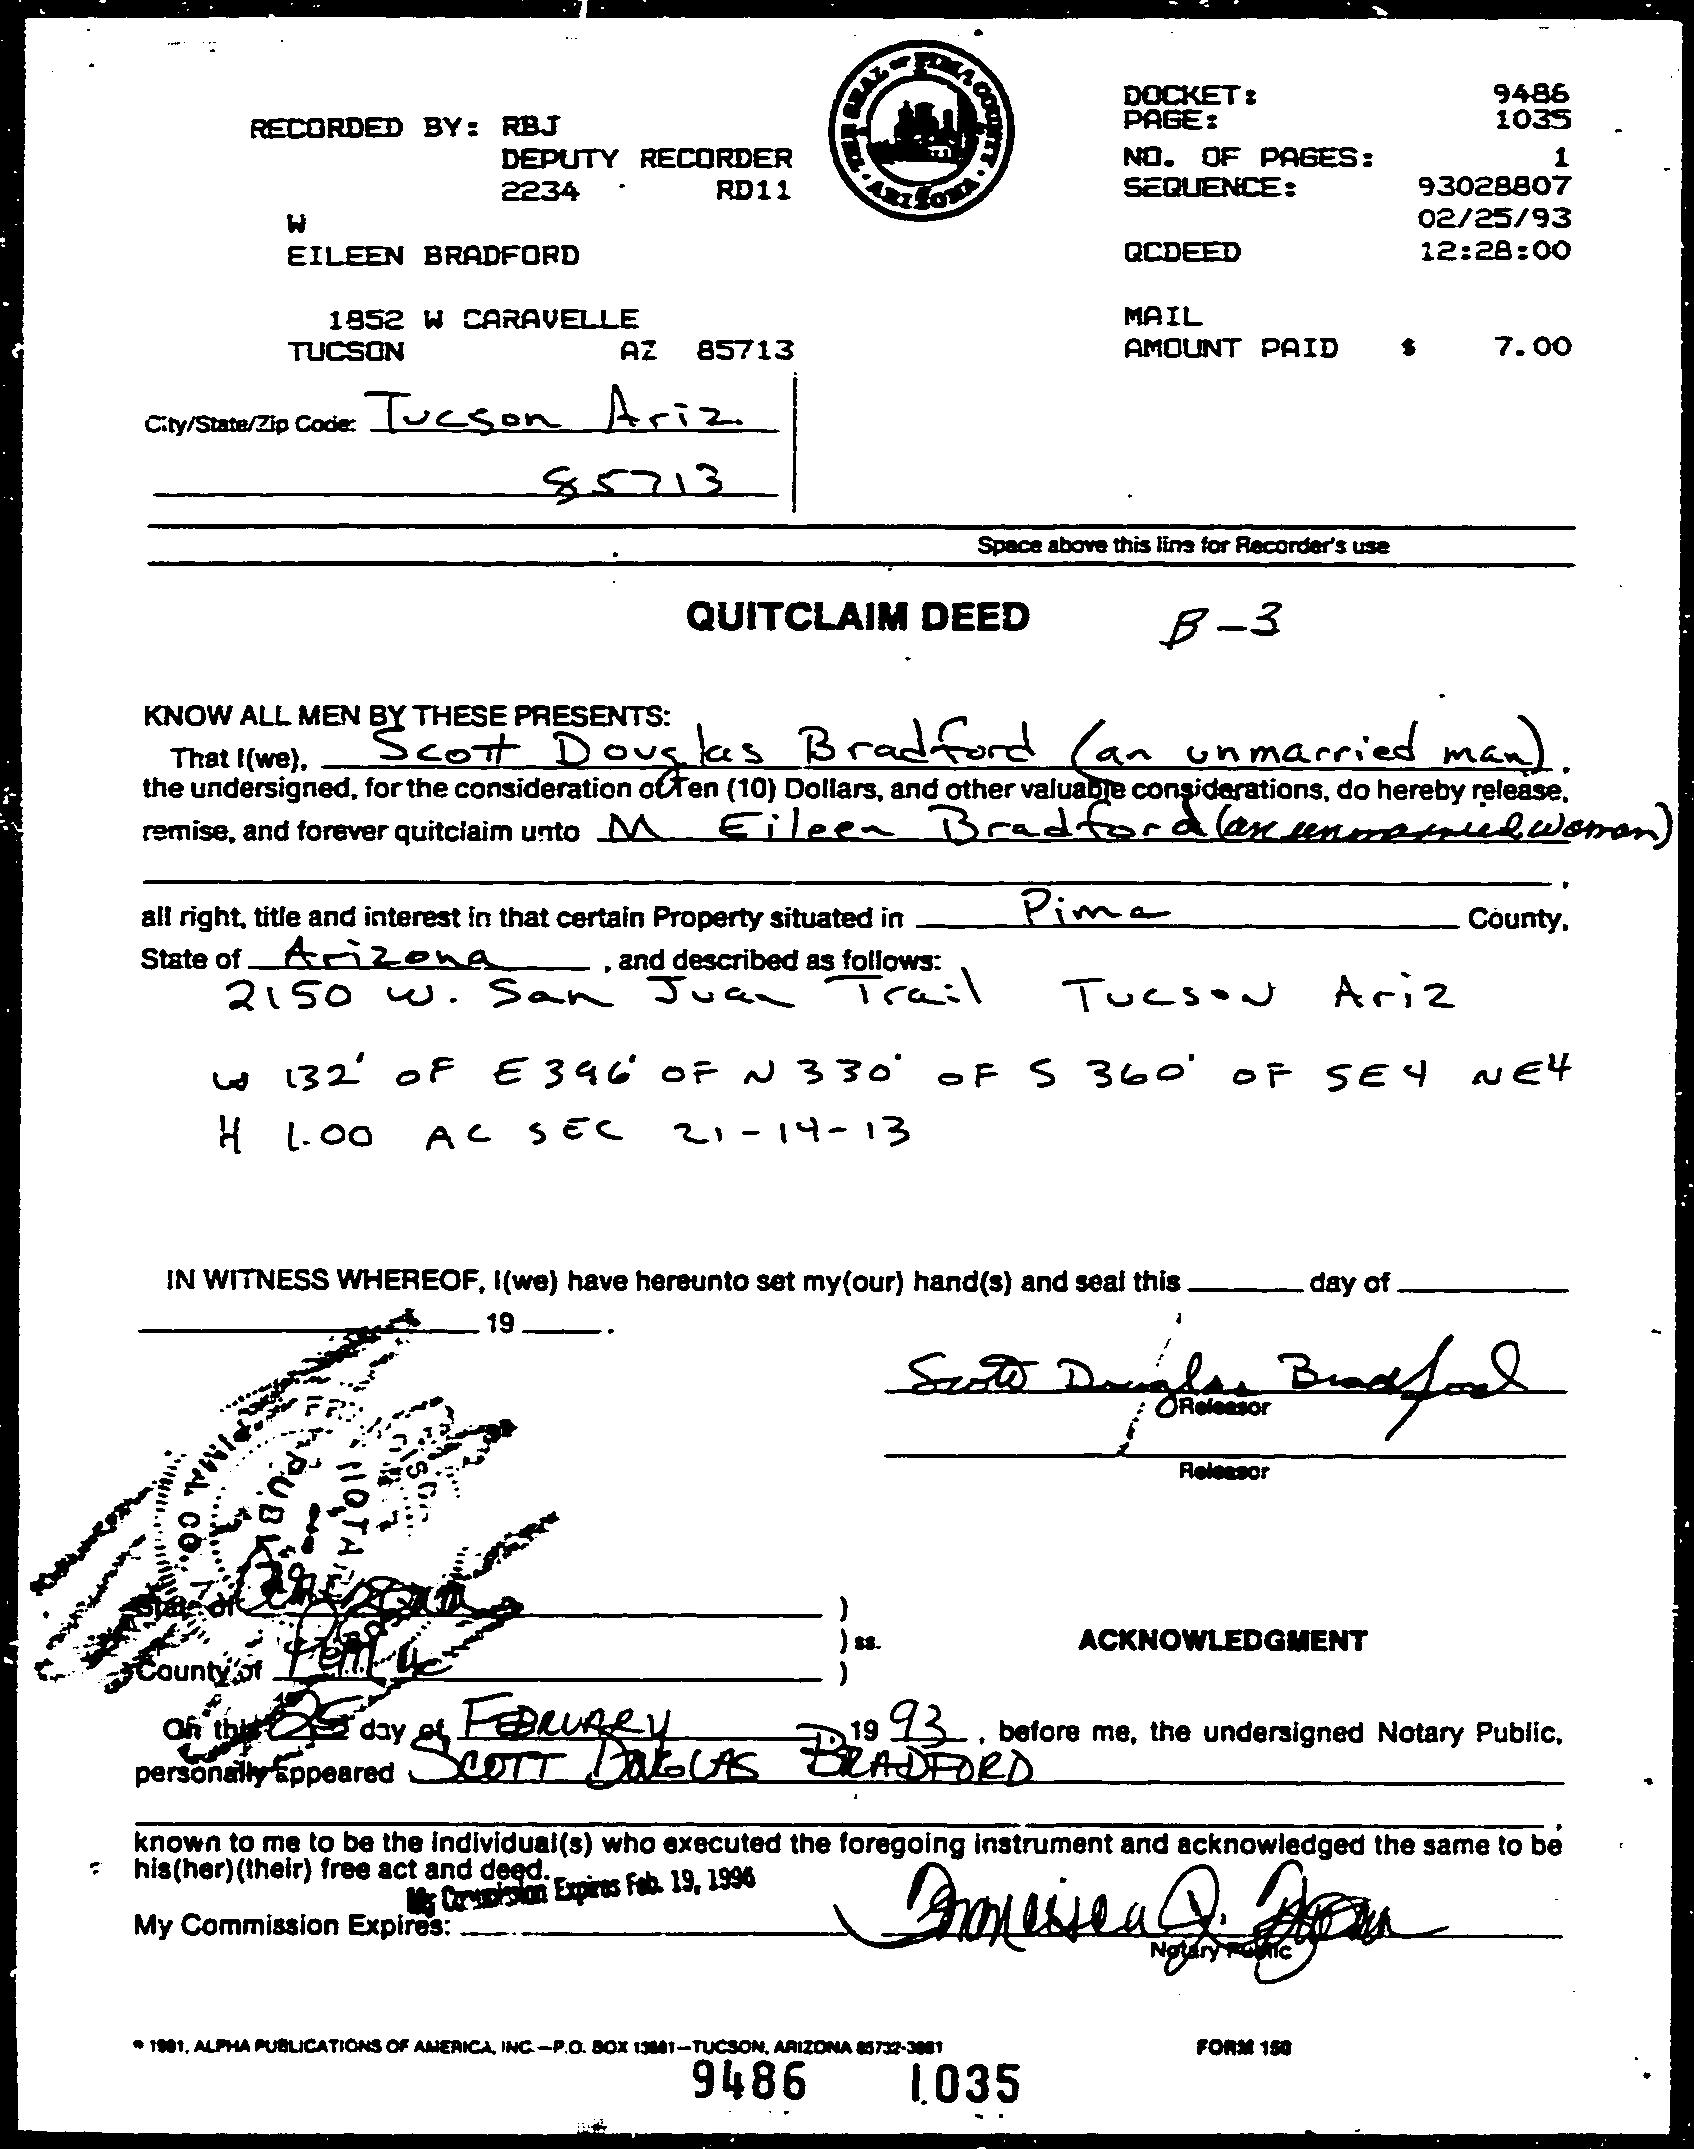 THE SEAL OF PIMA COUNTY
ARIZONA
RECORDED BY: RBJ
DEPUTY RECORDER
2234 RD11
W
EILEEN BRADFORD
1852 W CARAVELLE
TUCSON AZ 85713
DOCKET: 9486
PAGE: 1035
NO. OF PAGES: 1
SEQUENCE: 93028807
02/25/93
QCDEED 12:28:00
MAIL
AMOUNT PAID $ 7.00
City/State/Zip Code: Tucson Ariz.
85713
Space above this line for Recorder's use
QUITCLAIM DEED B-3
KNOW ALL MEN BY THESE PRESENTS:
That I(we), Scott Douglas Bradford (an unmarried man),
the undersigned, for the consideration of Ten (10) Dollars, and other valuable considerations, do hereby release,
remise, and forever quitclaim unto M Eileen Bradford (an unmarried woman)
,
all right, title and interest in that certain Property situated in Pima County,
State of Arizona, and described as follows:
2150 W. San Juan Trail Tucson Ariz
W 132' OF E 396' OF N 330' OF S 360' OF SE4 NE4
H 1.00 AC SEC 21-14-13
IN WITNESS WHEREOF, I(we) have hereunto set my(our) hand(s) and seal this day of
19 .
Scott Douglas Bradford
Releasor
Releasor
State of Arizona )
) ss. ACKNOWLEDGMENT
County of Pima )
On this 25 day of FEBRUARY 19 93, before me, the undersigned Notary Public,
personally appeared SCOTT DOUGLAS BRADFORD
,
known to me to be the individual(s) who executed the foregoing instrument and acknowledged the same to be
his(her)(their) free act and deed.
My Commission Expires Feb. 19, 1996
My Commission Expires:
Notary Public
© 1981, ALPHA PUBLICATIONS OF AMERICA, INC.—P.O. BOX 13881—TUCSON, ARIZONA 85732-3881 FORM 150
9486 1035